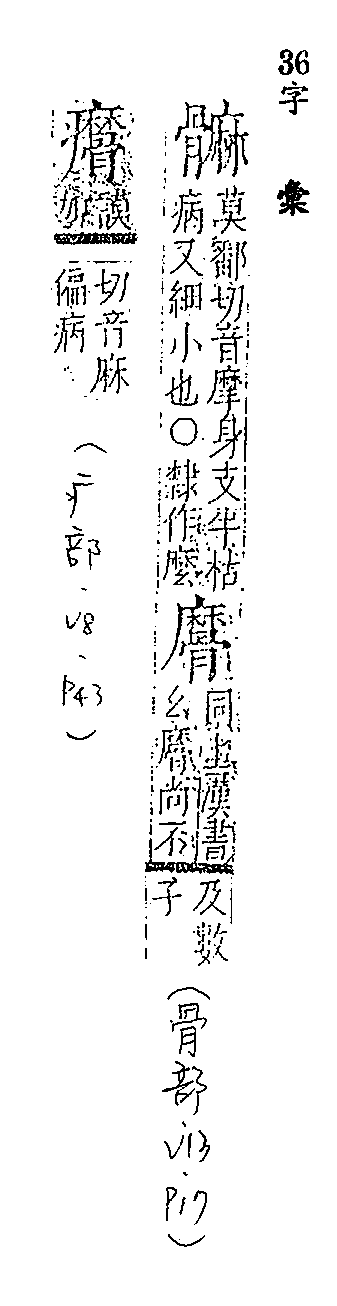 36字彙
䯢
莫鄱切音摩身支半枯
病又細小也○隸作麼
髍
同上漢書
幺髍尚不
及數
子
(骨部、V13、P17)
謨
切音麻
偏病
(疒部、V8、P43)